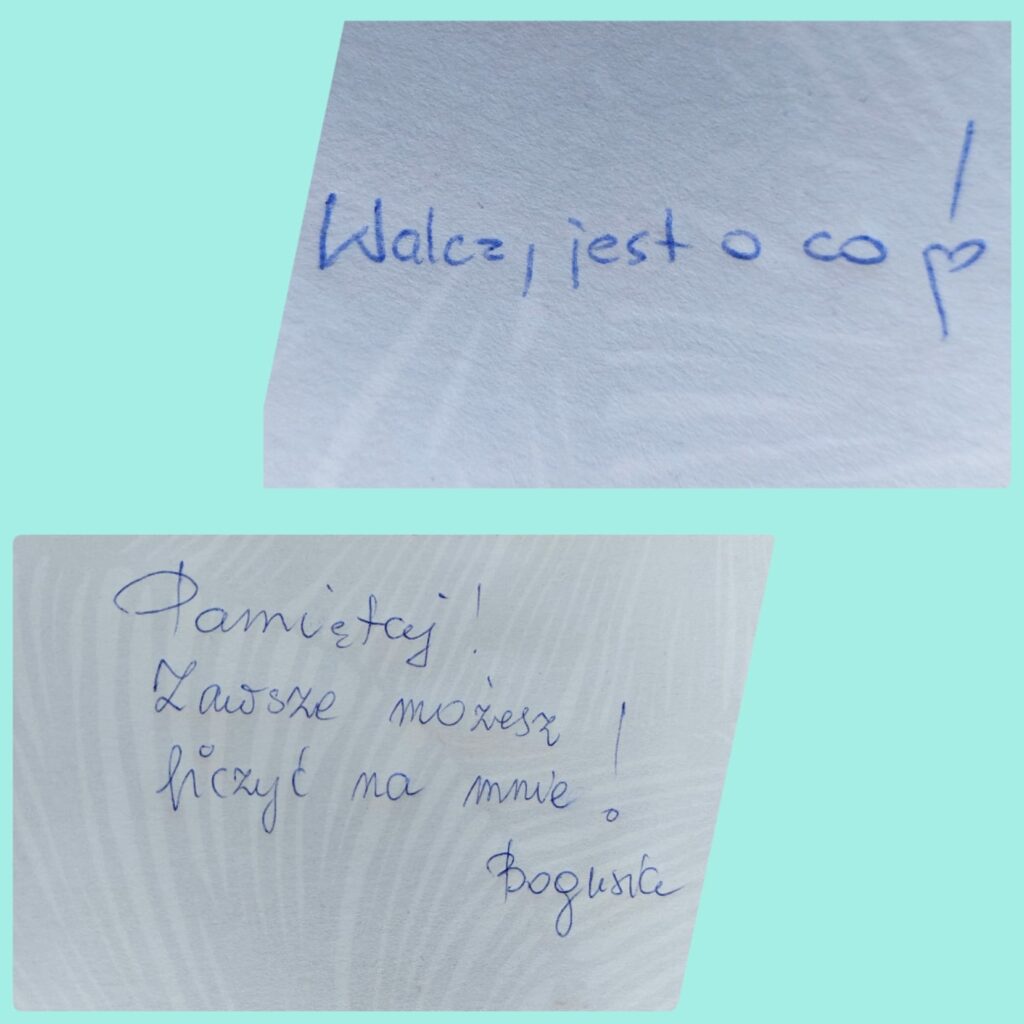 Walcz, jest o co!
Pamiętaj!
Zawsze możesz
liczyć na mnie!
Bogusia